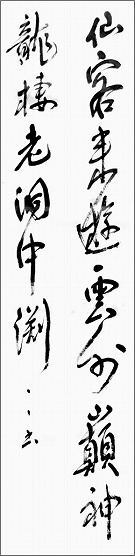 仙客来遊雲外巔神
龍棲老洞中淵